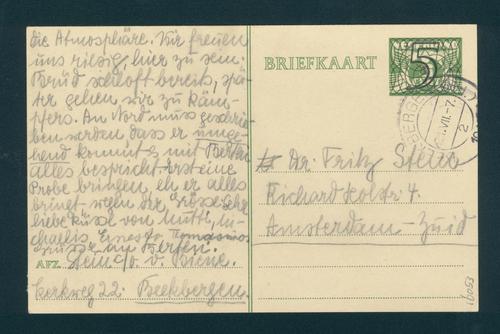 die Atmosphäre. Wir freuen
uns riesig, hier zu sein.
schläft bereits, spä-
ter gehen wir zu Käm-
pfers. An Nord muss geschrie-
ben werden dass er umge-
hend kommt mit
alles bespricht erst eine
Probe bringen, eh er alles
bringt wegen der Grösse.
liebe Küsse von Mutti,
Grüsse an
AFZ. Stein c/o v. Biene.
Kerkweg 22. Beekbergen.
BRIEFKAART
5
BERGEN
VII.-7.
2
Dr. Fritz Stein
Richard Holstr. 4.
Amsterdam-Zuid
10053